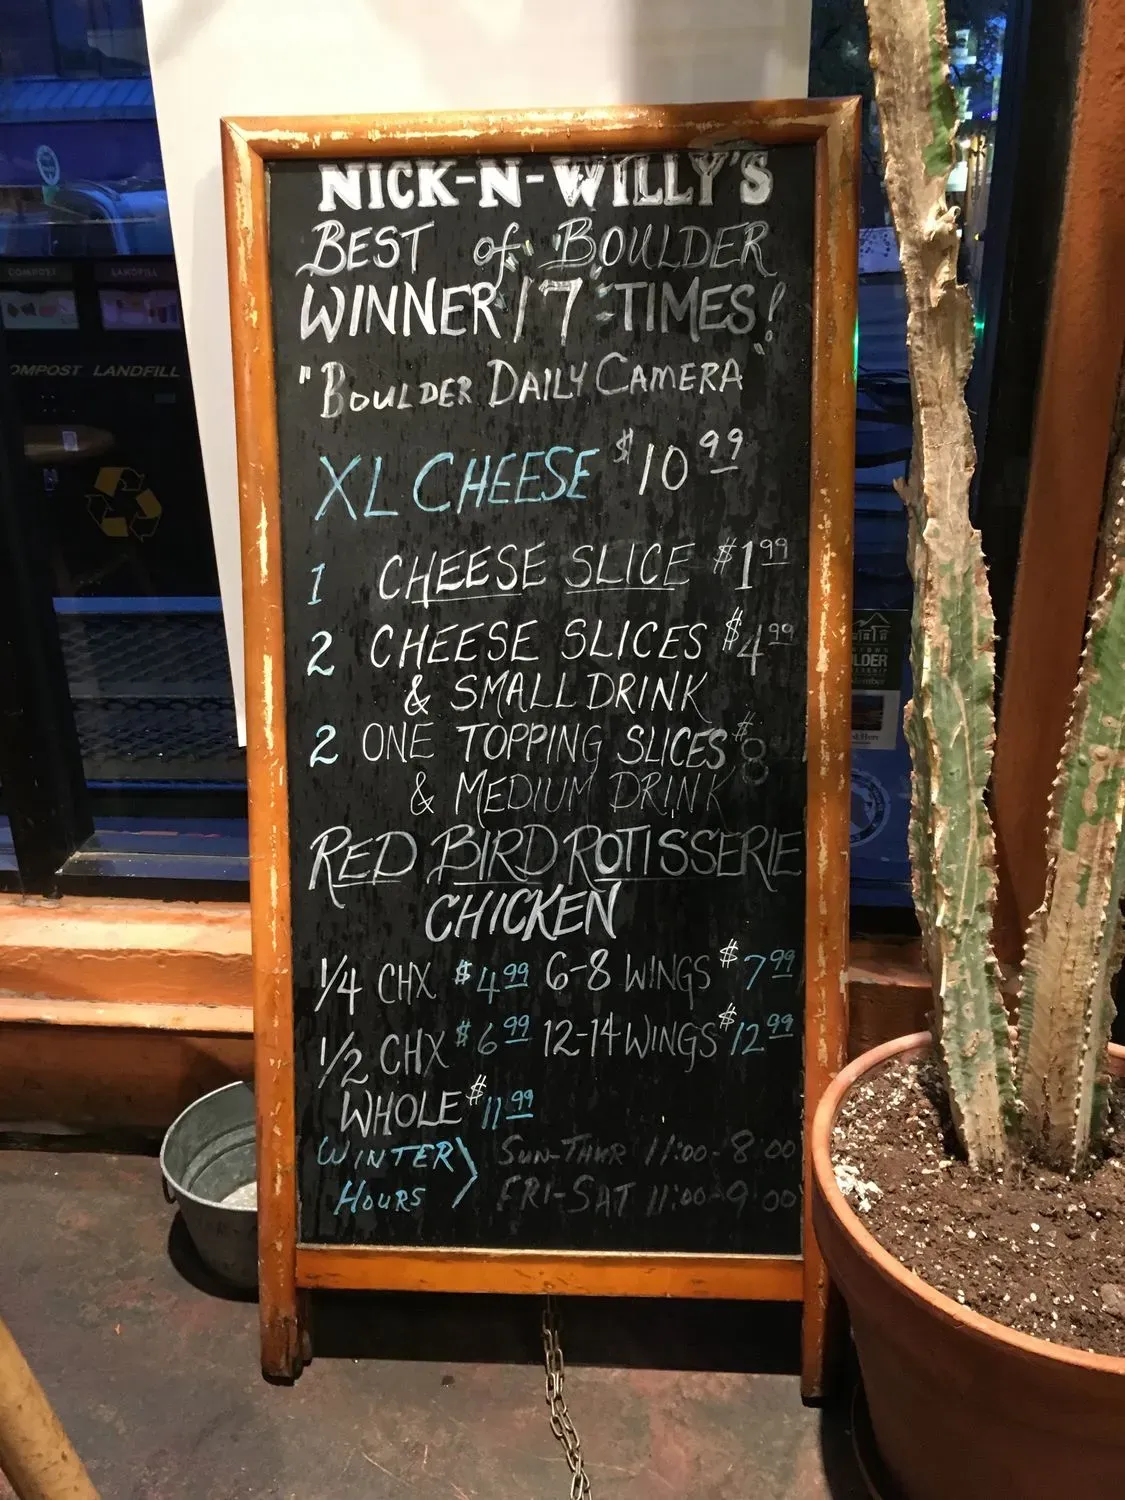 NICK-N-WILLY'S
BEST of BOULDER
WINNER 17-TIMES!
"BOULDER DAILY CAMERA"
XL CHEESE $10.99
1 CHEESE SLICE $1.99
2 CHEESE SLICES $4.99
& SMALL DRINK
2 ONE TOPPING SLICES $8
& MEDIUM DRINK
RED BIRD ROTISSERIE
CHICKEN
1/4 CHX $4.99 6-8 WINGS $7.99
1/2 CHX $6.99 12-14 WINGS $12.99
WHOLE $11.99
WINTER HOURS
SUN-THUR 11:00-8:00
FRI-SAT 11:00-9:00
COMPOST LANDFILL
OMPOST LANDFILL
LDER